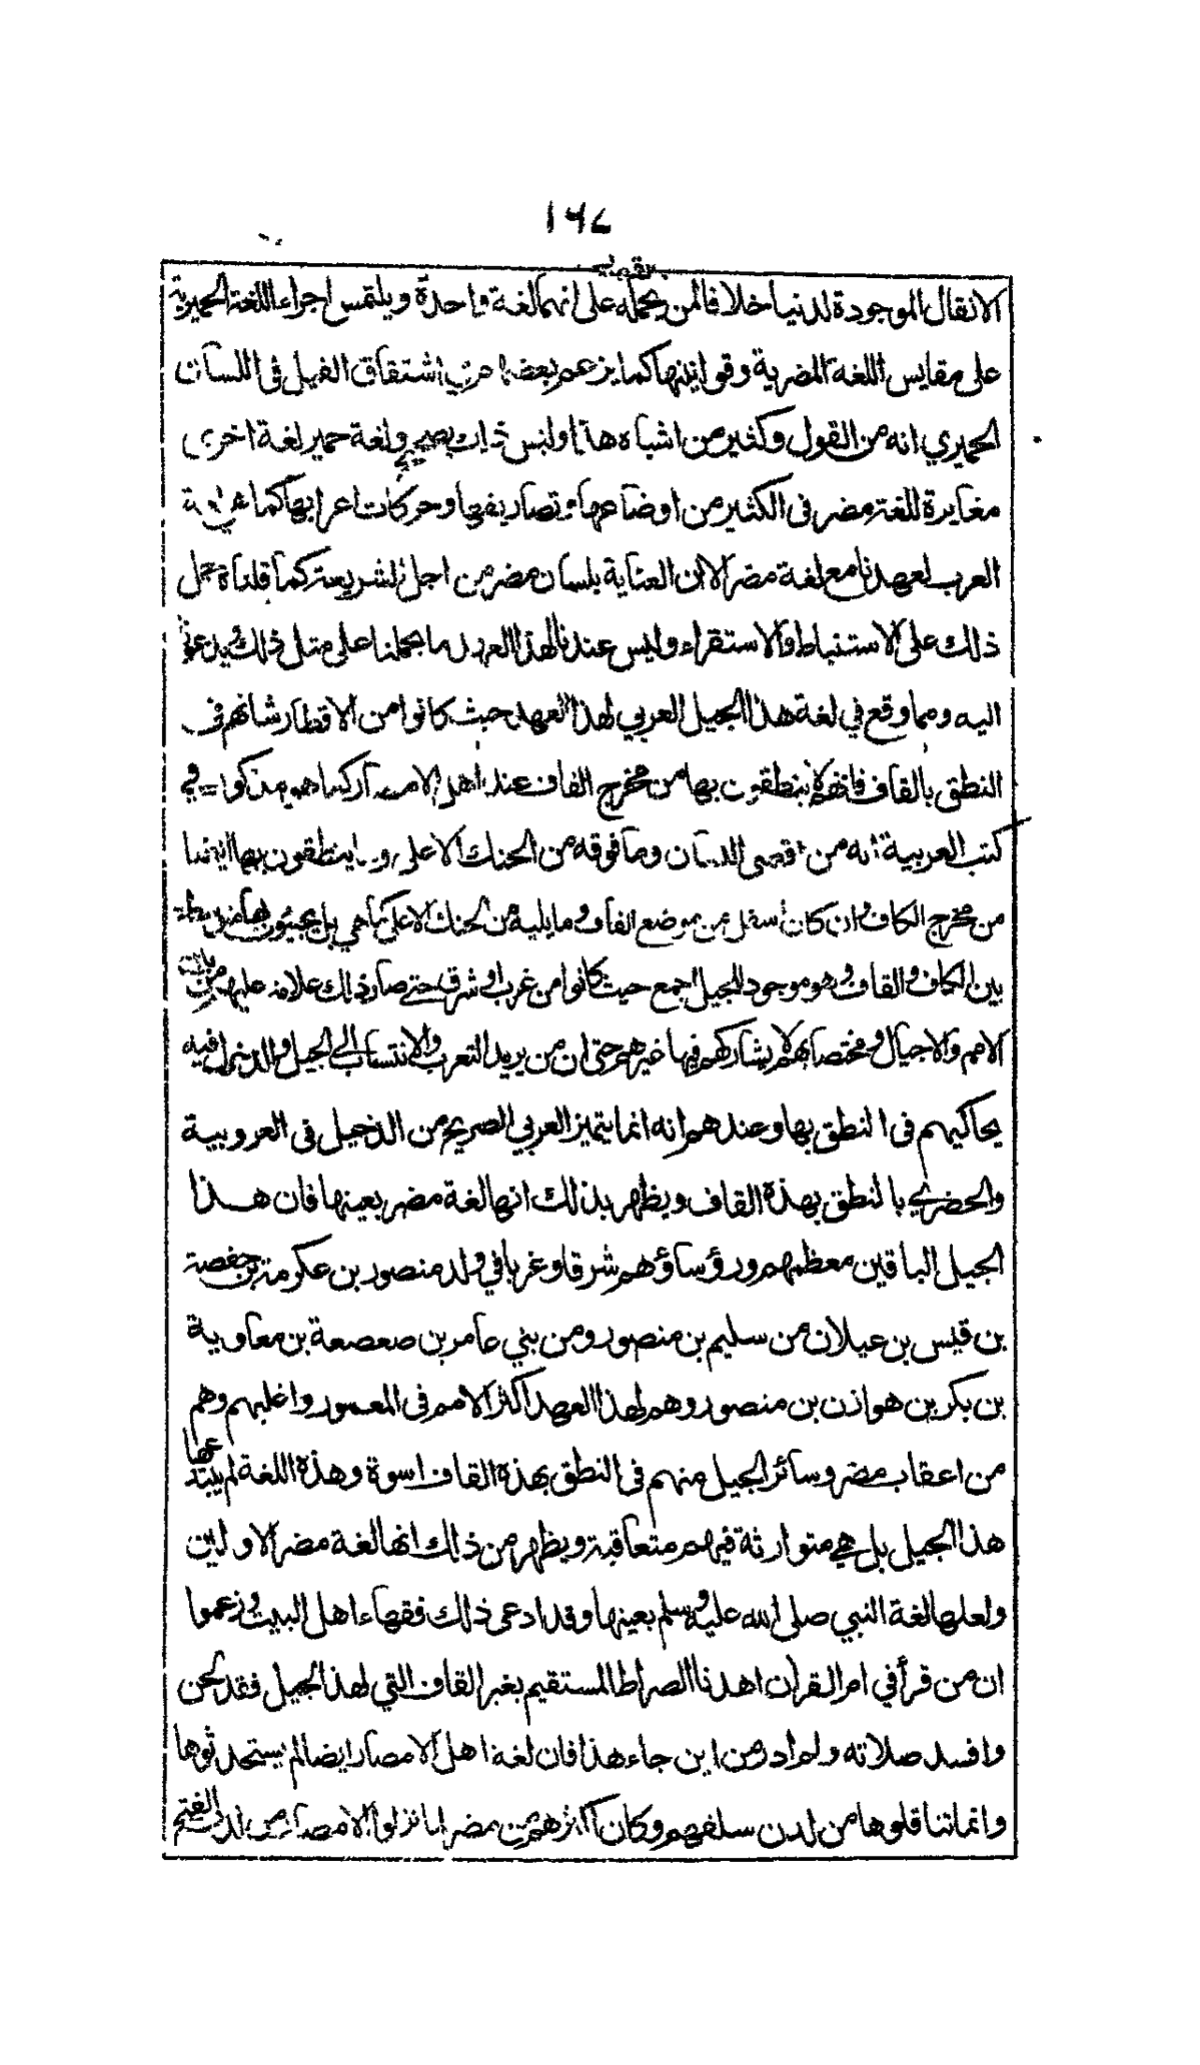 ١٦٧
الانقال الموجودة لدنيا خلافا لمن يحمله على انهما لغة واحدة ويلتمس اجراء اللغة الحميرية
على مقايس اللغة المضرية وقوانينها كما يزعم بعضهم اشتقاق القيل فى اللسان
الحميري انه من القول وكثير من اشباه هذا وليس ذلك بصحيح ولغة حمير لغة اخرى
مغايرة للغة مضر فى الكثير من اوضاعها وتصاريفها وحركات اعرابها كما هي لغة
العرب لعهدنا مع لغة مضر الا ان العناية بلسان مضر من اجل الشريعة كما قلناه حمل
ذلك على الاستنباط والاستقراء وليس عندنا لهذا العهد ما يحملنا على مثل ذلك ويدعونا
اليه ومما وقع في لغة هذا الجيل العربي لهذا العهد حيث كانوا من الاقطار شانهم فى
النطق بالقاف فانهم لا ينطقون بها من مخرج القاف عند اهل الامصار كما هو مذكور في
كتب العربية انه من اقصى اللسان وما فوقه من الحنك الاعلى وما ينطقون بها ايضا
من مخرج الكاف وان كان أسفل من موضع القاف وما يليه من الحنك الاعلى كما هي بل يجيئون بها متوسطة
بين الكاف والقاف وهو موجود للجيل اجمع حيث كانوا من غرب او شرق حتى صار ذلك علامة عليهم من بين
الامم والاجيال ومختصا بهم لا يشاركهم فيها غيرهم حتى ان من يريد التعرب والانتساب الى الجيل والدخول فيه
يحاكيهم فى النطق بها وعندهم انه انما يتميز العربي الصريح من الدخيل فى العروبية
والحضري بالنطق بهذه القاف ويظهر بذلك انها لغة مضر بعينها فان هذا
الجيل الباقين معظمهم ورؤساؤهم شرقا وغربا في ولد منصور بن عكرمة بن خفصة
بن قيس بن عيلان من سليم بن منصور ومن بني عامر بن صعصعة بن معاوية
بن بكر بن هوازن بن منصور وهم لهذا العهد اكثر الامم فى المعمور واغلبهم وهم
من اعقاب مضر وسائر الجيل منهم فى النطق بهذه القاف اسوة وهذه اللغة لم يبتدعها
هذا الجيل بل هي متوارثة فيهم متعاقبة ويظهر من ذلك انها لغة مضر الاولين
ولعلها لغة النبي صلى الله عليه وسلم بعينها وقد ادعى ذلك فقهاء اهل البيت وزعموا
ان من قرأ في ام القران اهدنا الصراط المستقيم بغير القاف التي لهذا الجيل فقد لحن
وافسد صلاته ولم ادر من اين جاء هذا فان لغة اهل الامصار ايضا لم يستحدثوها
وانما تناقلوها من لدن سلفهم وكان اكثرهم من مضر لما نزلوا الامصار من لدن الفتح